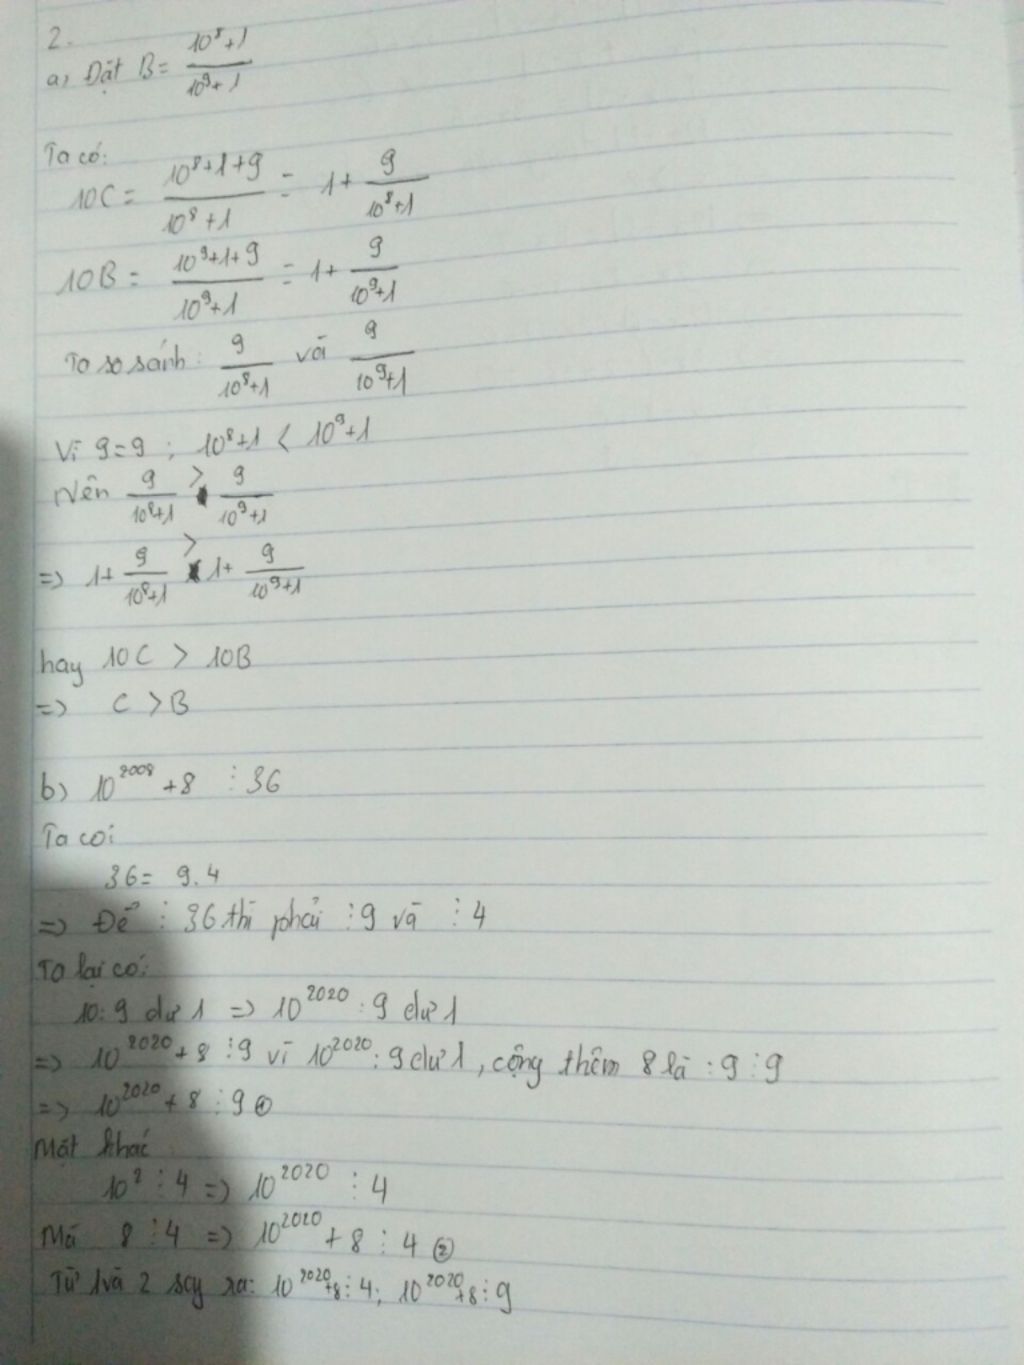 2.
a, Đặt B = (10⁸+1)/(10⁹+1)
Ta có:
10C = (10⁸+1+9)/(10⁸+1) = 1 + 9/(10⁸+1)
10B = (10⁹+1+9)/(10⁹+1) = 1 + 9/(10⁹+1)
Ta so sánh: 9/(10⁸+1) và 9/(10⁹+1)
Vì 9=9 ; 10⁸+1 < 10⁹+1
Nên 9/(10⁸+1) > 9/(10⁹+1)
=> 1 + 9/(10⁸+1) > 1 + 9/(10⁹+1)
hay 10C > 10B
=> C > B
b) 10²⁰⁰⁸ + 8 ⋮ 36
Ta có:
36 = 9.4
=> Để ⋮ 36 thì phải ⋮ 9 và ⋮ 4
Ta lại có:
10 : 9 dư 1 => 10²⁰²⁰ : 9 dư 1
=> 10²⁰²⁰ + 8 ⋮ 9 vì 10²⁰²⁰ : 9 dư 1, cộng thêm 8 là : 9 ⋮ 9
=> 10²⁰²⁰ + 8 ⋮ 9 ①
Mặt khác
10² ⋮ 4 => 10²⁰²⁰ ⋮ 4
Mà 8 ⋮ 4 => 10²⁰²⁰ + 8 ⋮ 4 ②
Từ 1 và 2 suy ra: 10²⁰²⁰+8 ⋮ 4; 10²⁰²⁰+8 ⋮ 9